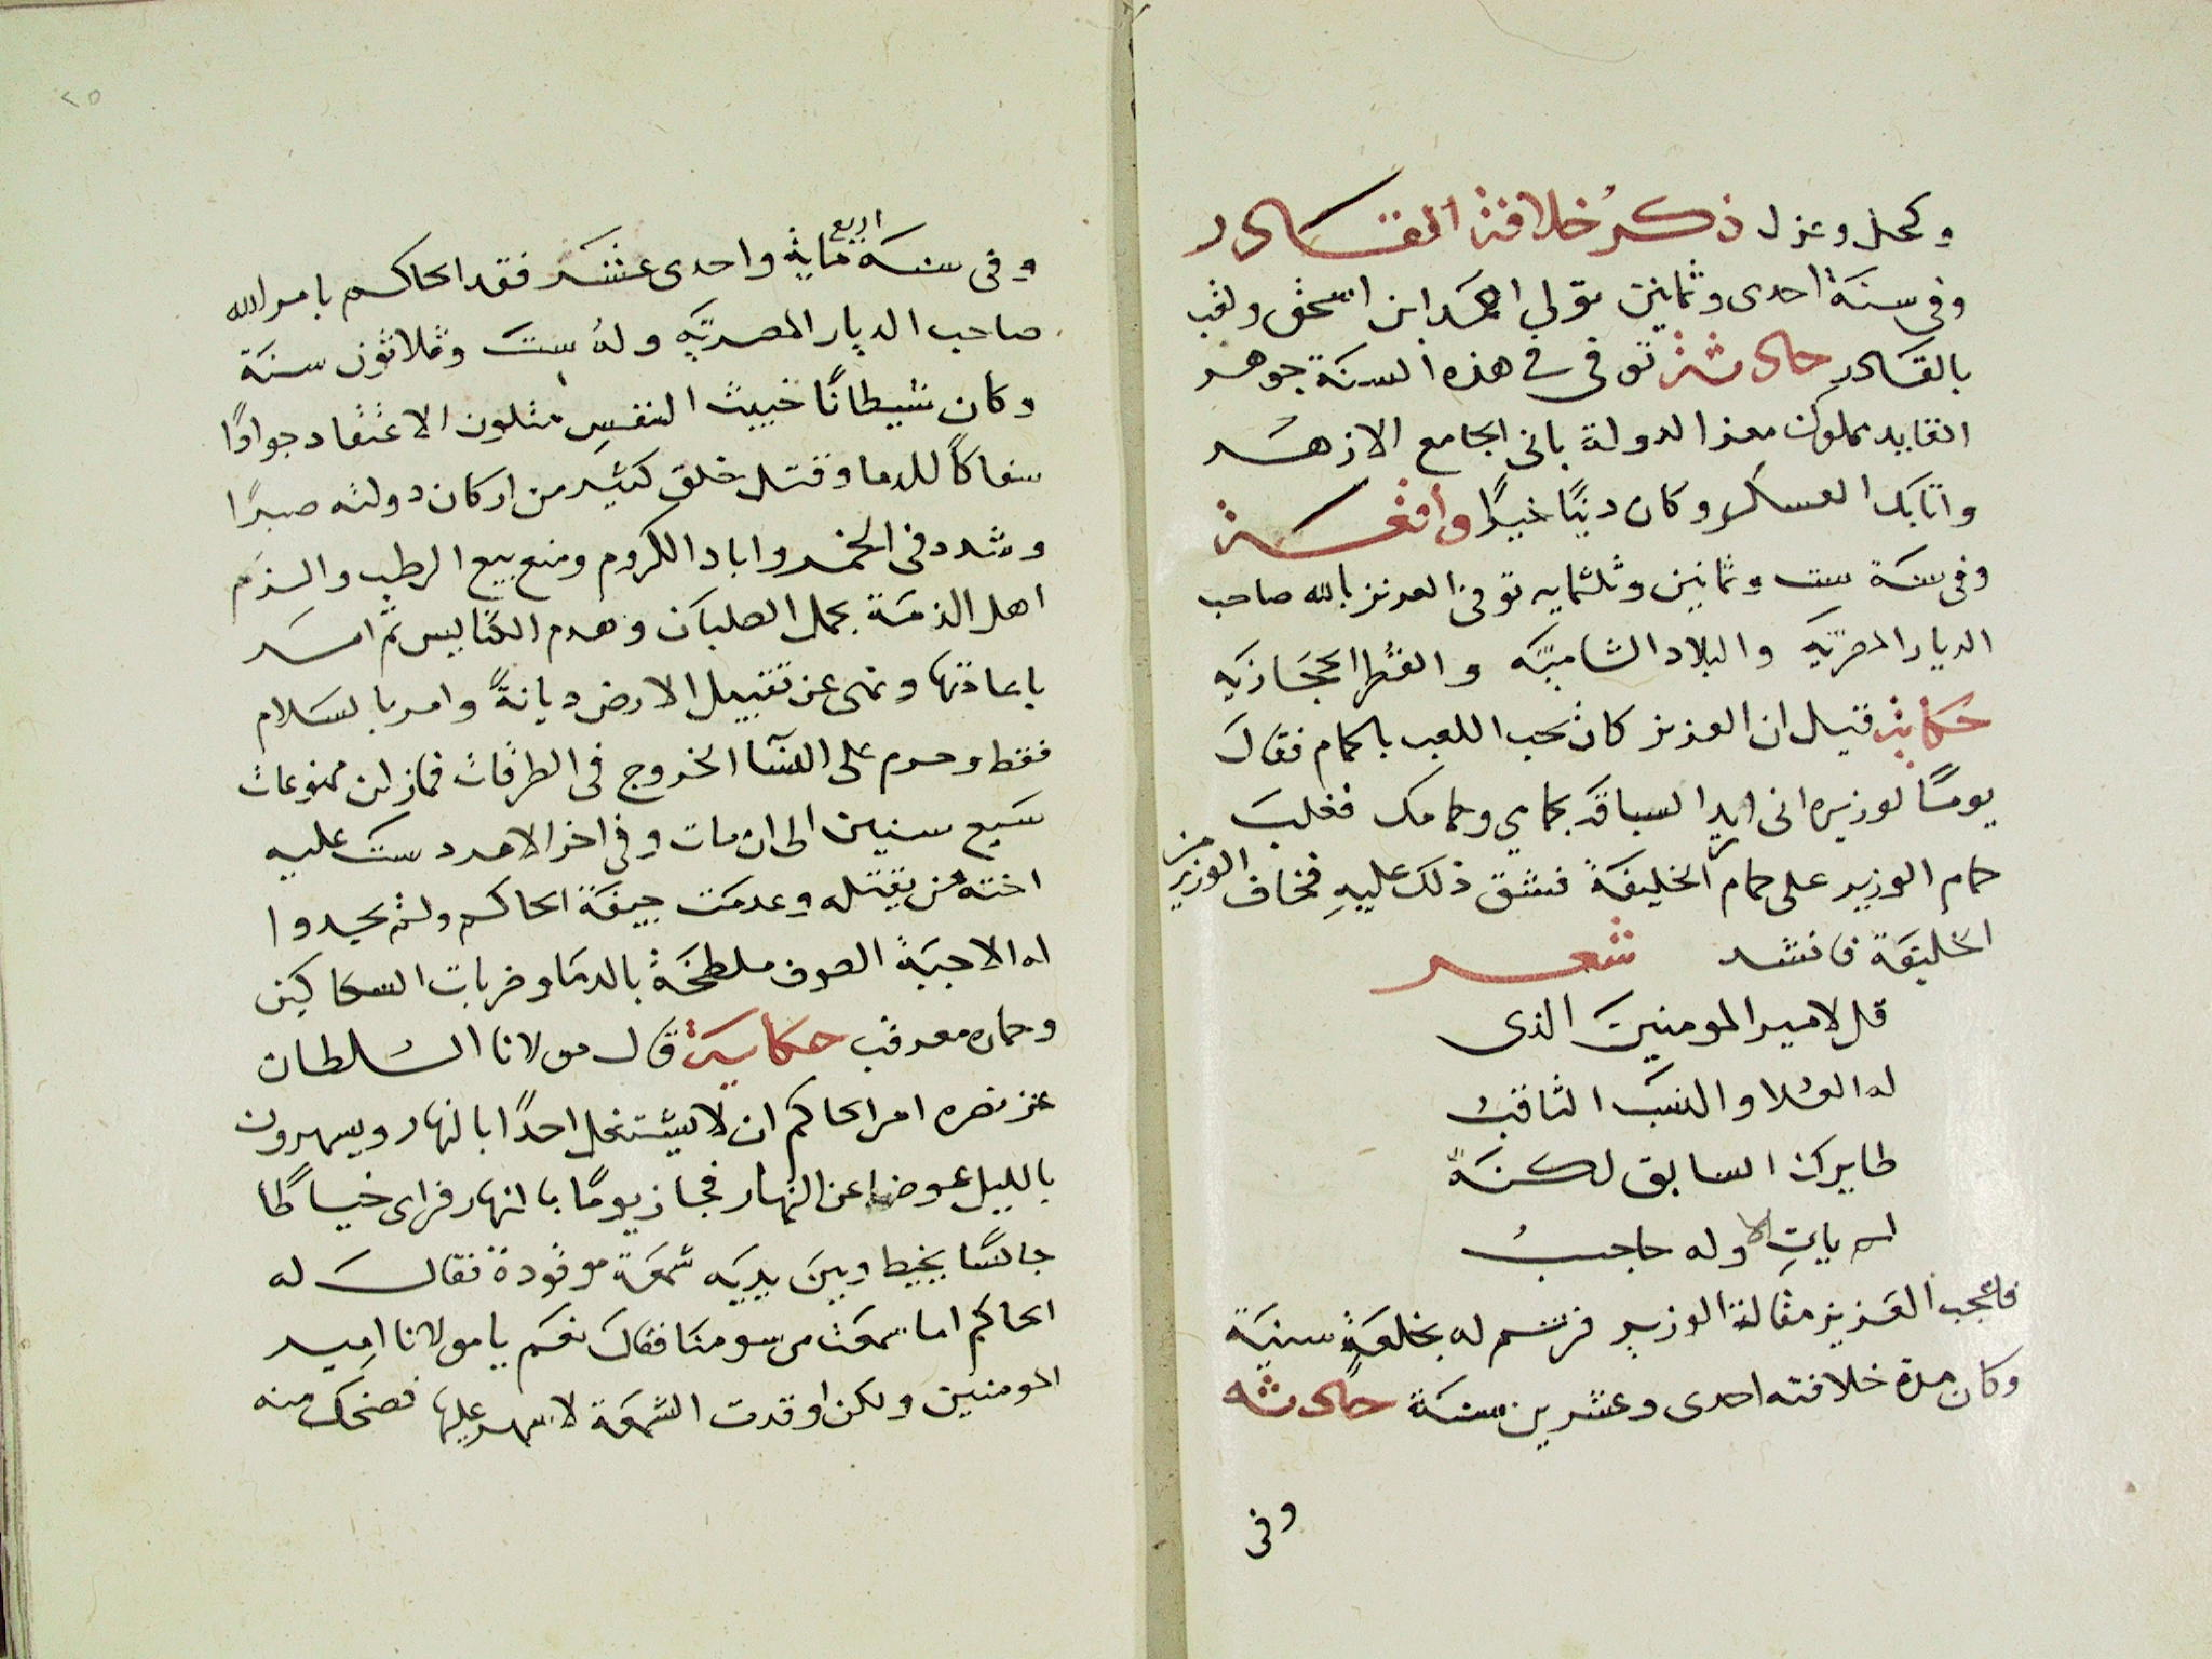 وكحل وعزل ذكر خلافة القادر
وفى سنة احدى وثمانين تولي احمد ابن اسحق ولقب
بالقادر حادثة توفى فى هذه السنة جوهر
القايد مملوك معز الدولة بانى الجامع الازهر
واتابك العسكر وكان دينًا خيرًا واقعة
وفى سنة ست وثمانين وثلثمايه توفى العزيز بالله صاحب
الديار المصريه والبلاد الشاميه والقطر الحجازيه
حكاية قيل ان العزيز كان يحب اللعب بالحمام فقال
يومًا لوزيره انى اريد السباق بحمامي وحمامك فغلب
حمام الوزير على حمام الخليفة فشق ذلك عليهِ فخاف الوزير من
الخليفة فانشد شعر
قل لامير المومنين الذى
له العلا والنسب الثاقب
طايرك السابق لكنه
لم ياتِ الا وله حاجبُ
فاعجب العزيز مقالة الوزير فرسم له بخلعةٍ سنية
وكان مدة خلافته احدى وعشرين سنة حادثه
وفى
٢٥
وفى سنة اربع ماية واحدى عشر فقد الحاكم بامر الله
صاحب الديار المصريه وله ست وثلاثون سنة
وكان شيطانًا خبيث النفسِ متلون الاعتقاد جوادًا
سفاكًا للدما وقتل خلق كثير من اركان دولته صبرًا
وشدد فى الخمر واباد الكروم ومنع بيع الرطب والزم
اهل الذمة بحمل الصلبان وهدم الكنايس ثم امر
باعادتها ونهى عن تقبيل الارض ديانةً وامر بالسلام
فقط وحرم على النسآ الخروج فى الطرقات فمازلن ممنوعات
سبع سنين الى ان مات وفى اخر الامر دست عليه
اخته من يقتله وعدمت جيفة الحاكم ولم يجدوا
له الا جبة الصوف ملطخة بالدما وضربات السكاكين
وحماره معرقب حكاية قال مولانا السلطان
عز نصره امر الحاكم ان لا يشتغل احدًا بالنهار ويسهرون
بالليل عوضا عن النهار فجاز يومًا بالنهار فراى خياطًا
جالسًا يخيط وبين يديه شمعة موقودة فقال له
الحاكم اما سمعت مرسومنا فقال نعم يا مولانا امير
المومنين ولكن اوقدت الشمعة لاسهر عليها فضحك منه